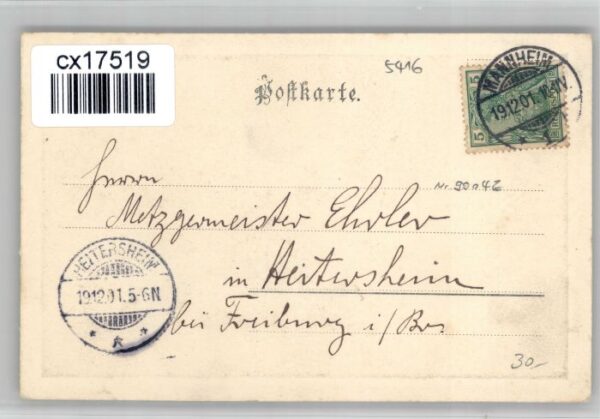 cx17519
5416
Postkarte.
5
5
MANNHEIM
19.12.01.
Herrn
Nr. 90a42
Metzgermeister Ehrler
in Heitersheim
HEITERSHEIM
19.12.01.5-6N
bei Freiburg i/Br.
30.-